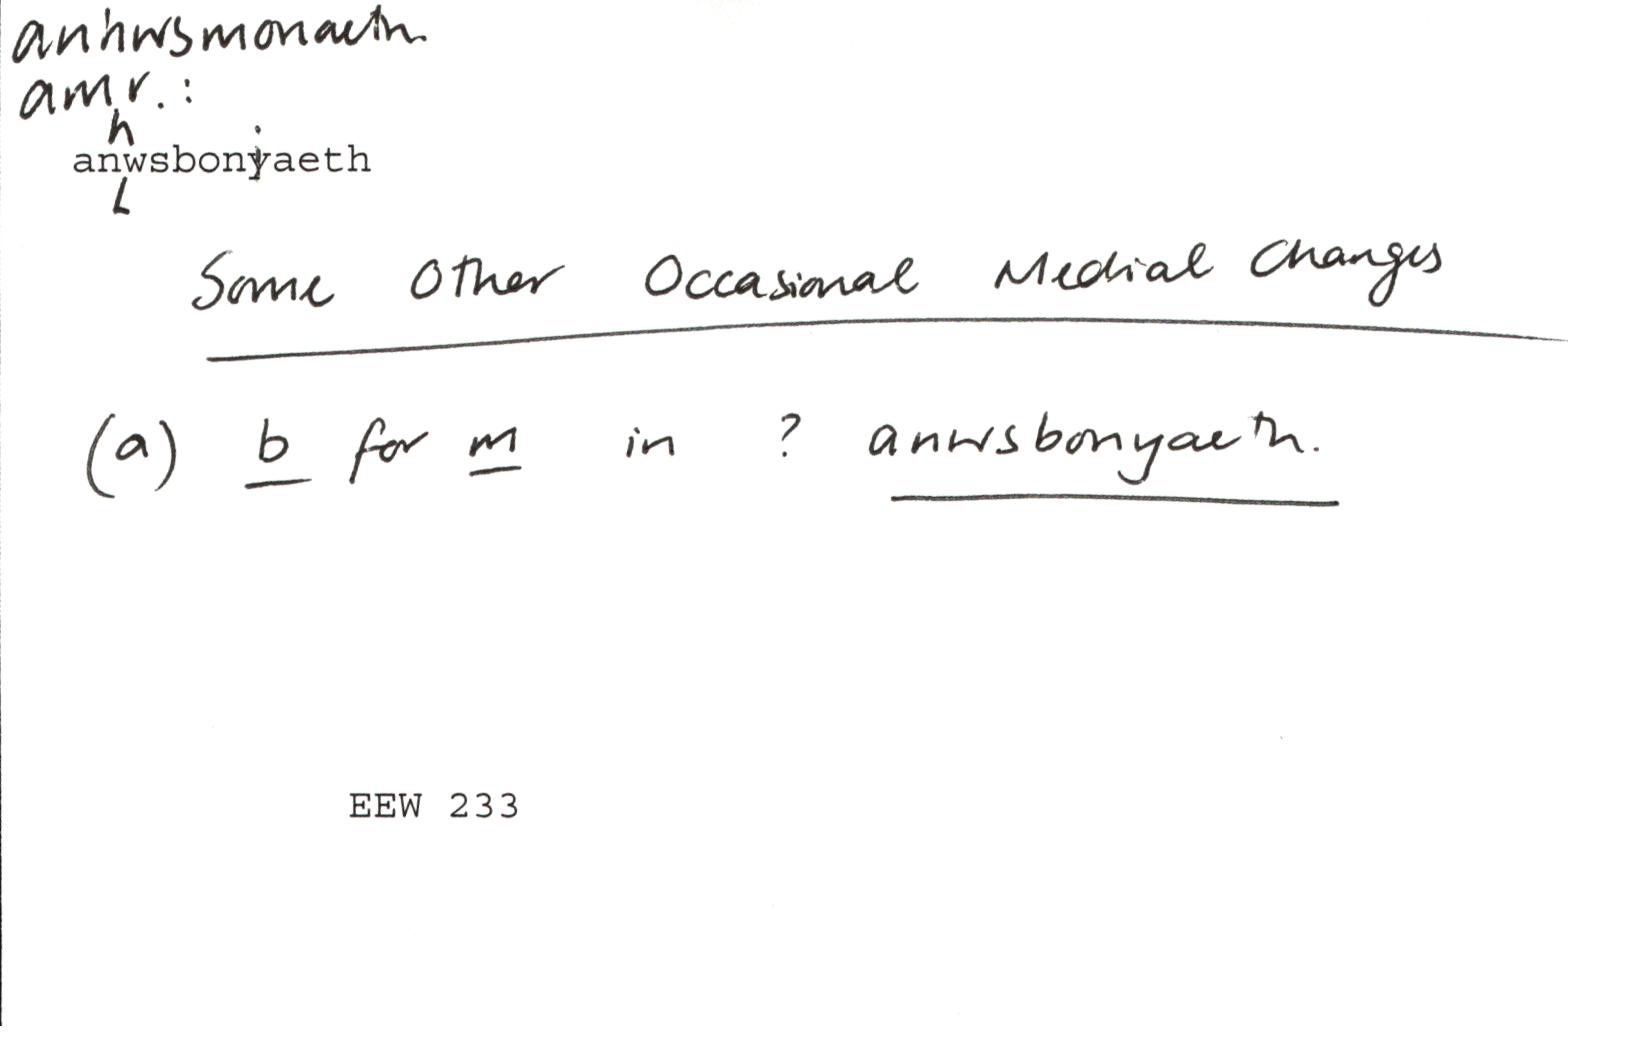 anhwsmonaeth
amr.:
h
anwsboniaeth
Some Other Occasional Medial Changes
(a) b for m in ? anwsbonyaeth.
EEW 233